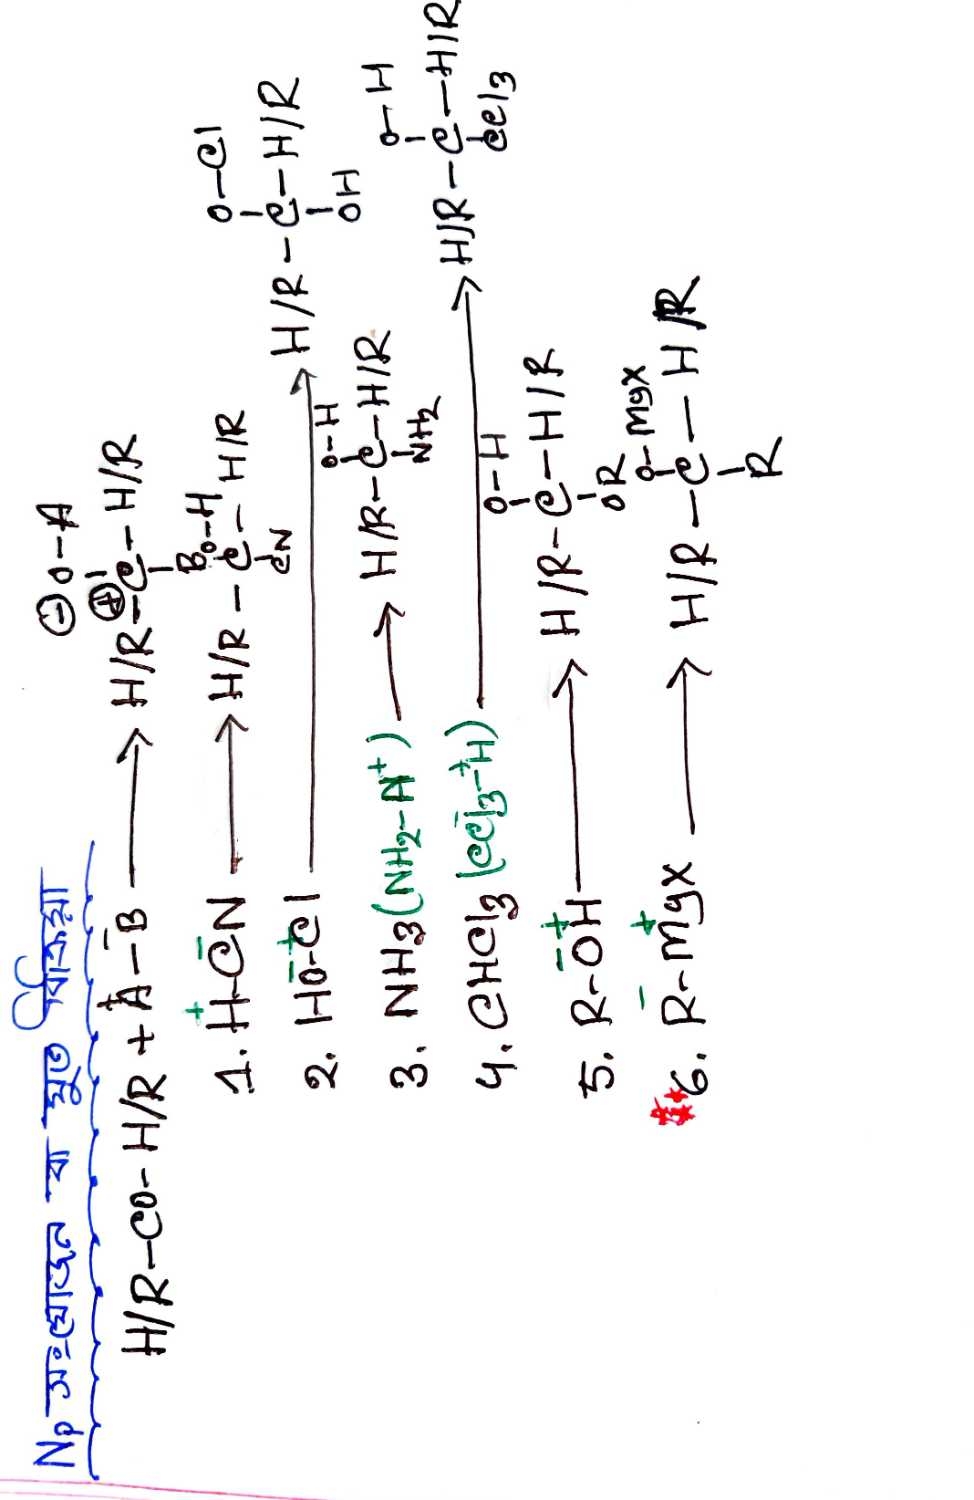 Np সংযোজন বা যুত বিক্রিয়া
H/R-CO-H/R + A⁺-B⁻ → H/R-C(O-A)(B)-H/R ⊖ ⊕
1. H⁺-CN⁻ → H/R-C(O-H)(CN)-H/R
2. HO⁻-Cl⁺ → H/R-C(O-Cl)(OH)-H/R
3. NH₃(NH₂-H⁺) → H/R-C(O-H)(NH₂)-H/R
4. CHCl₃ (CCl₃⁻-⁺H) → H/R-C(O-H)(CCl₃)-H/R
5. R-OH → H/R-C(O-H)(OR)-H/R
6. R⁻-Mgx⁺ → H/R-C(O-Mgx)(R)-H/R